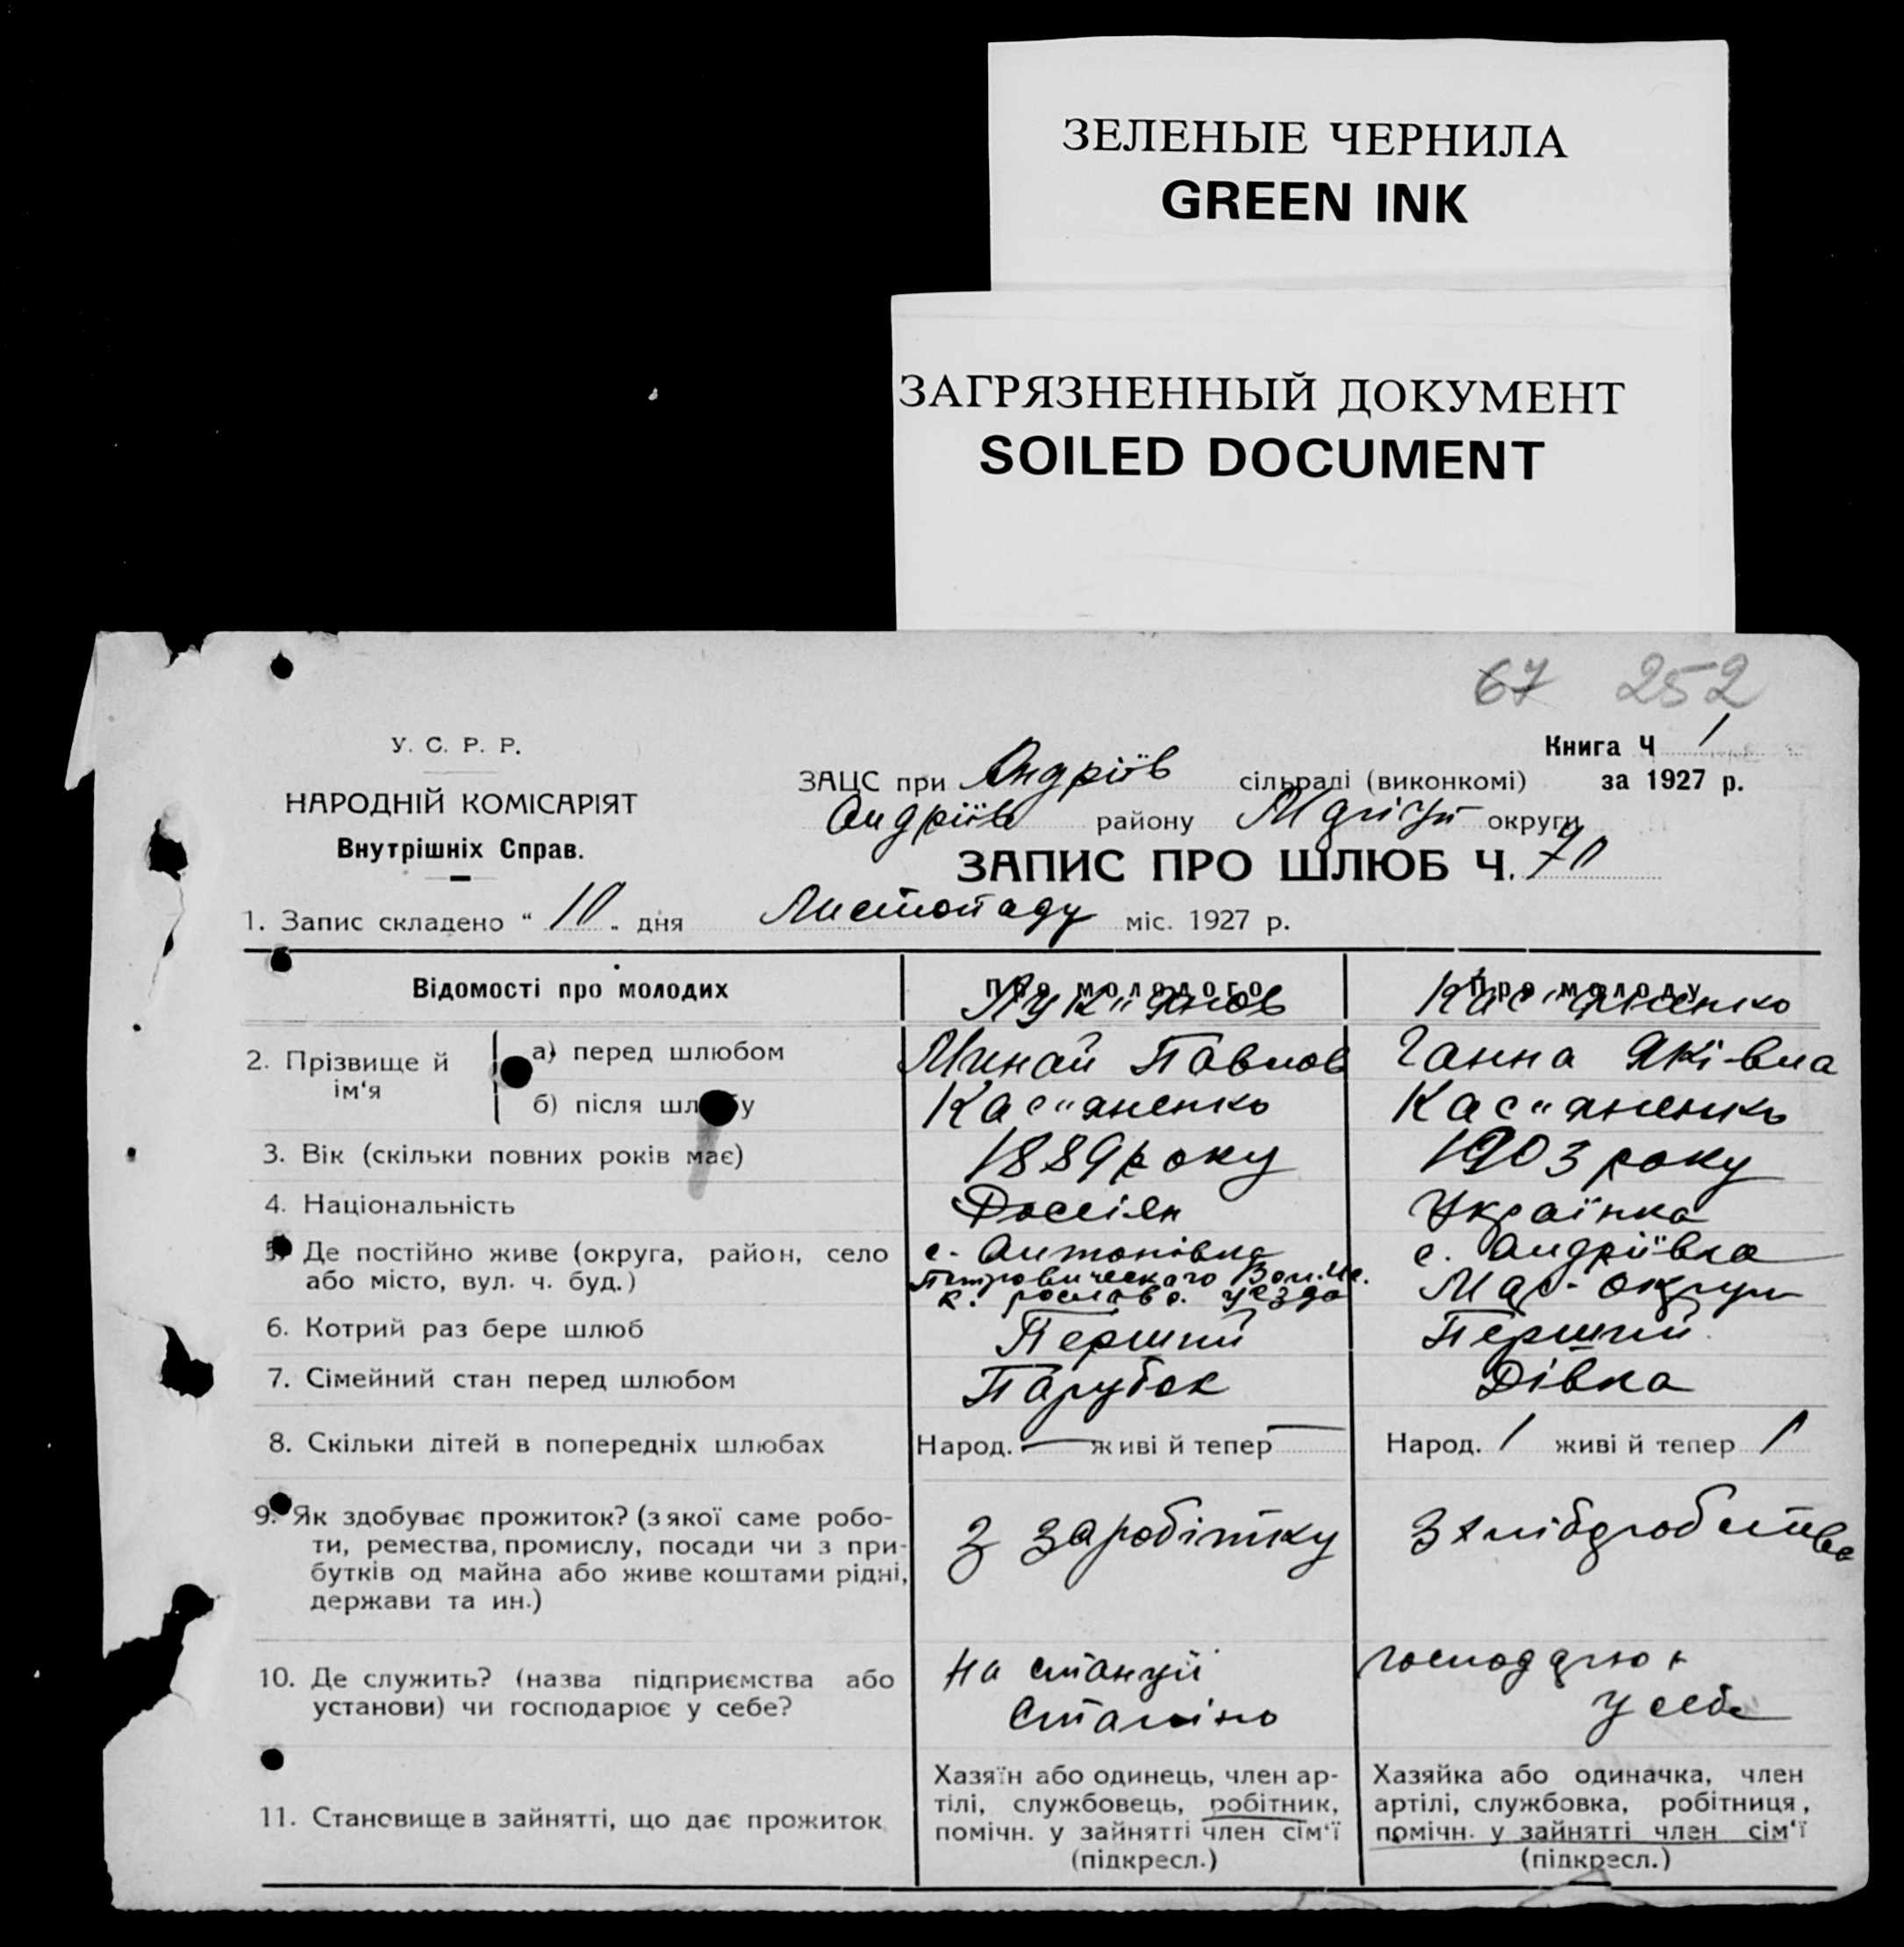 ЗЕЛЕНЫЕ ЧЕРНИЛА
GREEN INK
ЗАГРЯЗНЕННЫЙ ДОКУМЕНТ
SOILED DOCUMENT
67 252
У. С. Р. Р.
НАРОДНІЙ КОМІСАРІЯТ
Внутрішніх Справ.
Книга Ч 1
ЗАЦС при Андріїв сільраді (виконкомі) за 1927 р.
Андріїв району округи
ЗАПИС ПРО ШЛЮБ Ч. 70
1. Запис складено " 10 " дня Листопаду міс. 1927 р.
Відомості про молодих
Про молодого
Про молоду
Лук"янов
Кас"яненко
2. Прізвище й ім'я
а) перед шлюбом
Минай Павлов
Ганна Яківна
б) після шлюбу
Кас"яненко
Кас"яненко
3. Вік (скільки повних років має)
1889 року
1903 року
4. Національність
Россіян
Українка
5. Де постійно живе (округа, район, село
або місто, вул. ч. буд.)
с. Антонівка
Петровического Вол.
уезда
с. Андріївка
Мар. округи
6. Котрий раз бере шлюб
Перший
Перший
7. Сімейний стан перед шлюбом
Парубок
Дівка
8. Скільки дітей в попередніх шлюбах
Народ. — живі й тепер —
Народ. 1 живі й тепер 1
9. Як здобуває прожиток? (з якої саме робо-
ти, ремества, промислу, посади чи з при-
бутків од майна або живе коштами рідні,
держави та ин.)
З заробітку
З хліборобства
10. Де служить? (назва підприємства або
установи) чи господарює у себе?
На станції
Сталіно
у себе
11. Становище в зайнятті, що дає прожиток
Хазяїн або одинець, член ар-
тілі, службовець, робітник,
помічн. у зайнятті член сім'ї
(підкресл.)
Хазяйка або одиначка, член
артілі, службовка, робітниця,
помічн. у зайнятті член сім'ї
(підкресл.)